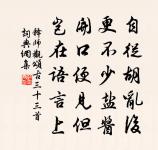 自從胡亂後
更不少鹽醬
開口便見但
豈在語言上
釋師觀頌古三十三首
詞典網集